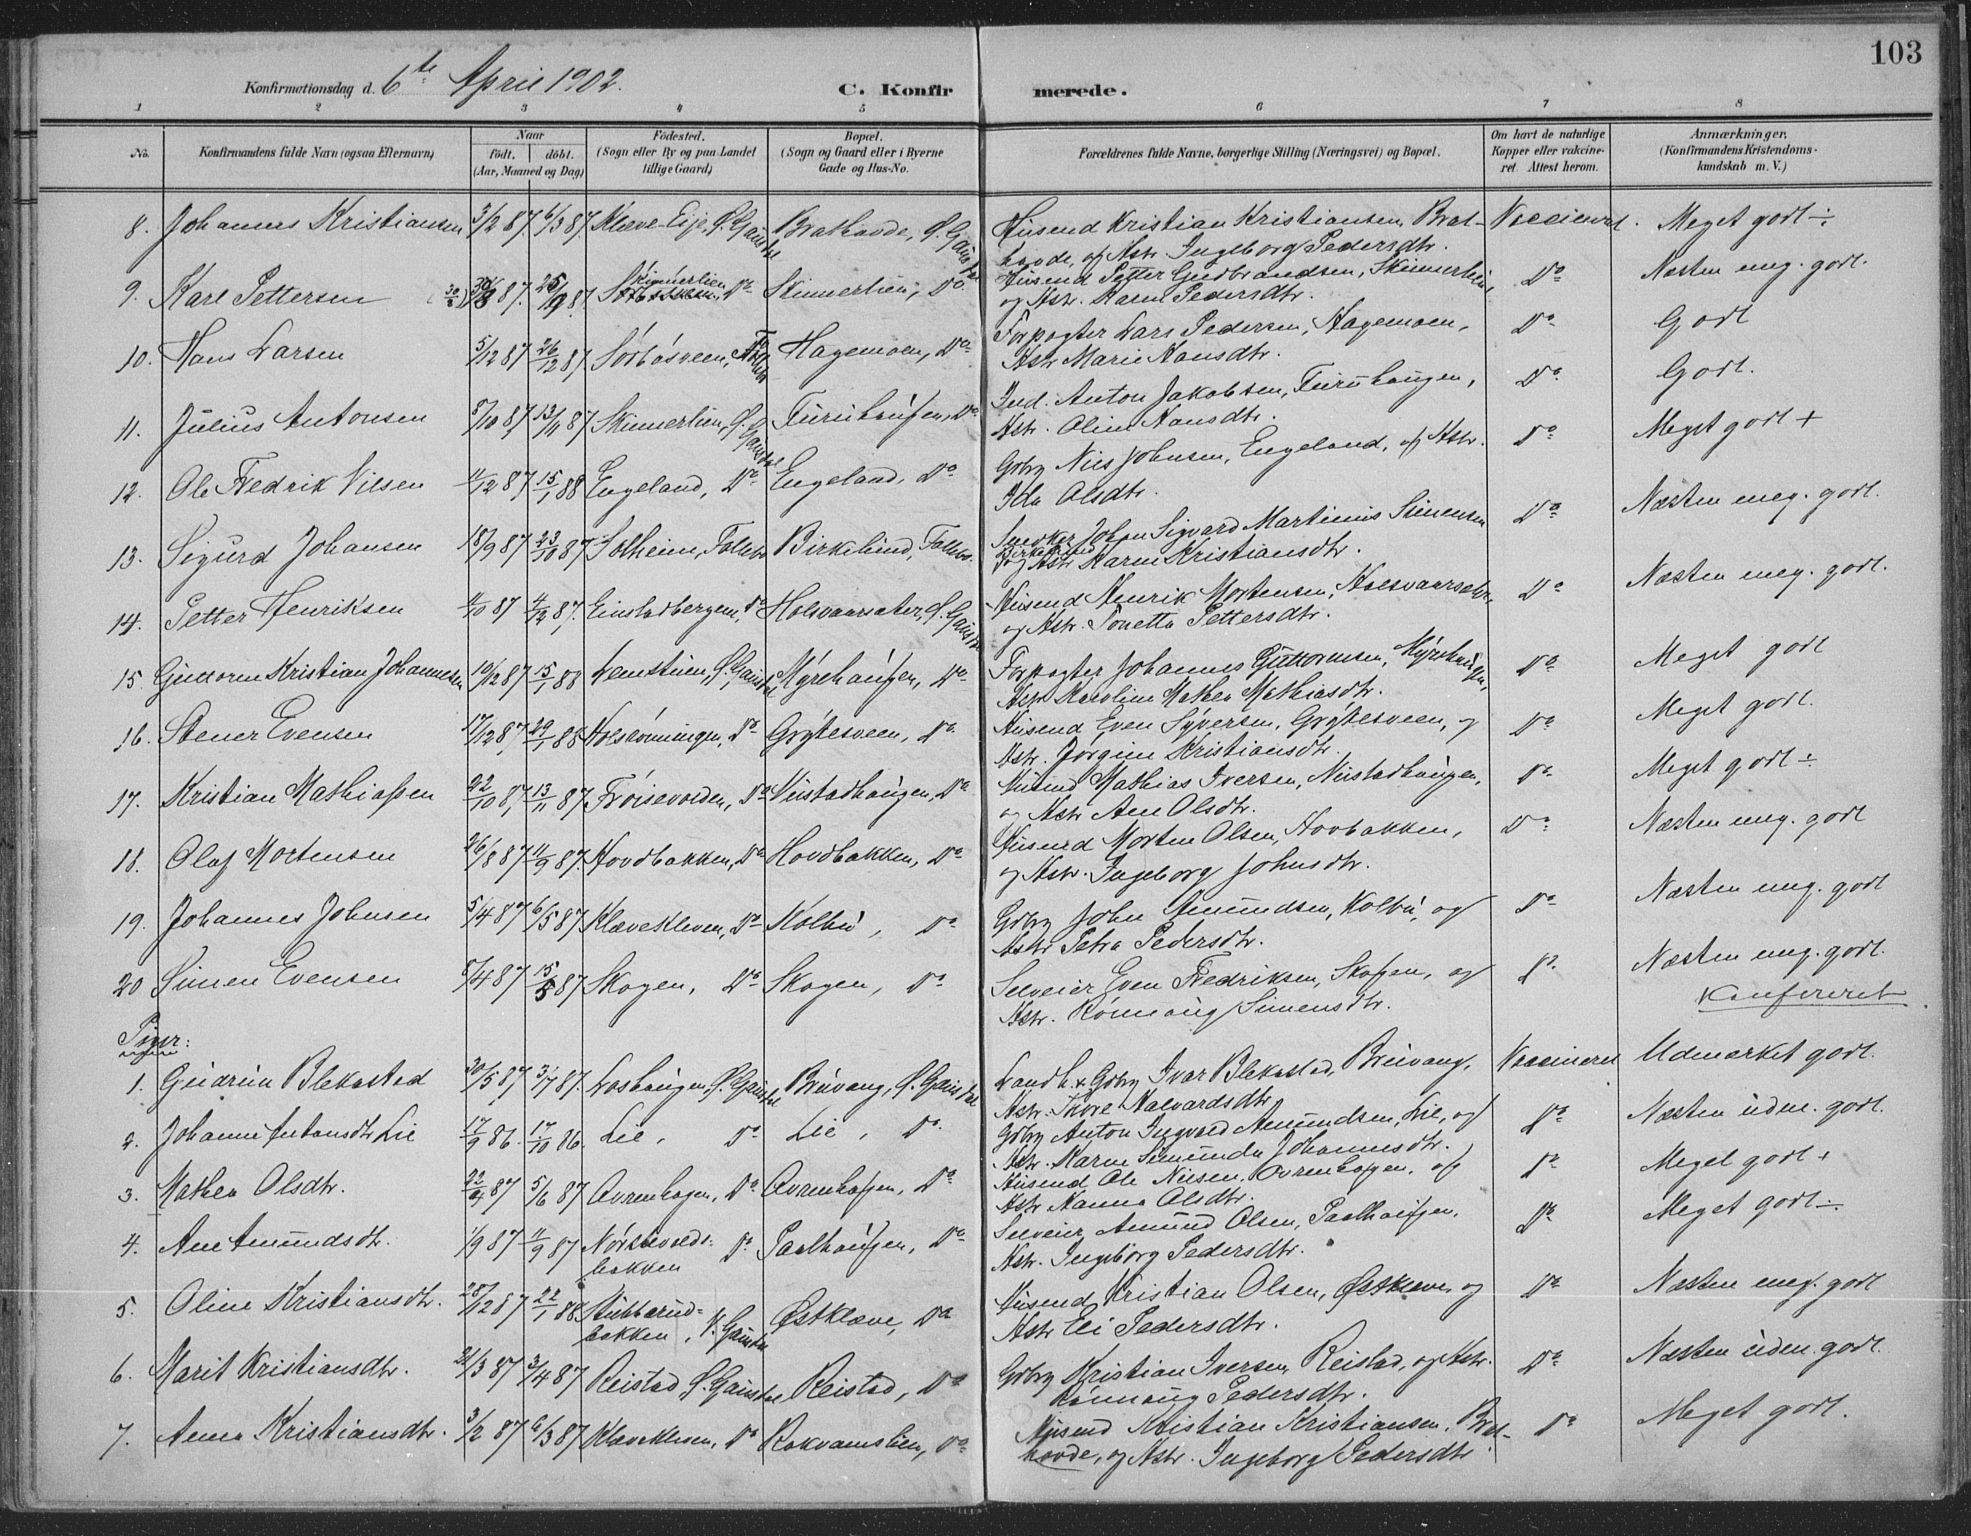 103
Konfirmationsdag d. 6te April 1902.
C. Konfirmerede.
1 2 3 4 5 6 7 8
No.
Konfirmandens fulde Navn (ogsaa Efternavn)
Naar
födt. döbt.
(Aar, Maaned og Dag)
Födested.
(Sogn eller By og paa Landet
tillige Gaard)
Bopæl.
(Sogn og Gaard eller i Byerne
Gade og Hus-No.
Forældrenes fulde Navne, borgerlige Stilling (Næringsvei) og Bopæl.
Om havt de naturlige
Kopper eller vakcine-
ret. Attest herom.
Anmærkninger.
(Konfirmandens Kristendoms-
kundskab m. V.)
8. Johannes Kristiansen 3/2 87. 6/3 87 Klæve Eje, Ø. Gausdal Brathovde, Ø. Gausdal Husmd Kristian Kristiansen, Brat- Vaccineret. Meget godt ÷
hovde, og Hstr. Ingeborg Pedersdtr.
9. Karl Pettersen 87. 25/9 87 Skinnerlien, Do Skinnerlien, Do Husmd Petter Gudbrandsen, Skinnerlien, Do Næsten meg. godt.
og Hstr. Karen Pedersdtr.
10. Hans Larsen 5/12 87 26/12 87 Sørbøsveen, Hagemoen, Do Forpagter Lars Pedersen, Hagemoen, Do Godt
Hstr Marie Hansdtr.
11. Julius Antonsen 5/10 87 13/11 87 Skinnerlien, Ø. Gausdal Furuhaugen, Do Ind. Anton Jakobsen, Furuhaugen, Do Godt.
Hstr. Oline Hansdtr.
12. Ole Fredrik Nilsen 11/12 87 15/1 88 Engeland, Do Engeland, Do Gbrg Nils Johnsen, Engeland, og Hstr. Do Meget godt +
Ida Olsdtr.
13. Sigurd Johansen 18/9 87 23/10 87 Solheim, Follebu Birkelund, Follebu. Snedker Johan Sigvard Martinus Simensen Do Næsten meg. godt.
Birkelund og Hstr Karen Kristiansdtr.
14. Petter Henriksen 4/10 87 4/12 87. Einstadbergene, Do Holsvaarsæter, Ø. Gausdal Husmd Henrik Mortensen, Holsvaarsæter, Do Næsten meg. godt.
og Hstr. Tonetta Pettersdtr.
15. Guttorm Kristian Johannesen 10/12 87 15/1 88 Ø. Gausdal Myrehaugen, Do Forpagter Johannes Guttormsen, Myrehaugen, Do Meget godt
Hstr Karoline Mathea Mathiasdtr.
16. Stener Evensen 17/12 87 29/1 88 Do Grytesveen, Do Husmd Even Syversen, Grytesveen, og Do Meget godt.
Hstr. Jørgine Kristiansdtr.
17. Kristian Mathiassen 22/10 87 13/11 87 Frøisevolden, Do Veistadhaugen, Do Husmd Mathias Iversen, Veistadhaugen, Do Meget godt ÷
og Hstr Ane Olsdtr.
18. Olaf Mortensen 26/8 87 11/9 87. Hovdbakken, Do Hovdbakken, Do Husmd Morten Olsen, Hovbakken, Do Næsten meg. godt
og Hstr. Ingeborg Johnsdtr.
19. Johannes Johnsen 5/4 87 6/5 87 Klævekleven, Do Kolbu, Do Gbrg John Amundsen, Kolbu, og Do Næsten meg. godt
Hstr Petra Pedersdtr.
20 Simen Evensen 5/4 87 15/5 87 Skogen, Do Skogen, Do Selveier Even Fredriksen, Skogen, og Do Næsten meg. godt.
Hstr. Rønnaug Simensdtr. Konfereret
Piger:
1. Gudrun Blekastad 30/5 87 3/7 87. Loshaugen, Ø. Gausdal Bruvang, Ø. Gausdal Landh. & Gbrg Ivar Blekastad, Bruvang, Vaccineret Udmærket godt.
Hstr. Thore Halvardsdtr.
2. Johanne Antonsdtr Lie 17/9 86. 17/10 86. Lie, Do Lie, Do Gbrg Anton Ingvald Amundsen, Lie, og Do Næsten udm. godt.
Hstr. Karen Simunda Johannesdtr.
3. Mathea Olsdtr. 87 5/6 87 Avrenhagen, Do Avrenhagen, Do Husmd Ole Nilsen, Avrenhagen, og Do Meget godt +
Hstr Hanna Olsdtr.
4. Ane Amundsdtr. 1/9 87 11/9 87 Nørstevolds- Do Paalhaugen, Do Selveier Amund Olsen, Paalhaugen, Do Meget godt ÷
bakken Hstr. Ingeborg Pedersdtr.
5. Oline Kristiansdtr. 28/12 87 22/1 88 Stubberud- Østklæve, Do Husmd Kristian Olsen, Østklæve, og Do Næsten meg. godt
bakken, V. Gausdal Hstr Eli Pedersdtr.
6. Marit Kristiansdtr. 21/3 87 3/4 87 Reistad Ø. Gausdal Reistad, Do Gbrg Kristian Iversen, Reistad, og Hstr. Do Næsten udm. godt.
Rønnaug Pedersdtr.
7. Anna Kristiansdtr. 3/2 87 6/3 87 Klævekleven, Do Rokvamslien, Do Husmd Kristian Kristiansen, Brat- Do Meget godt.
hovde, og Hstr. Ingeborg Pedersdtr.